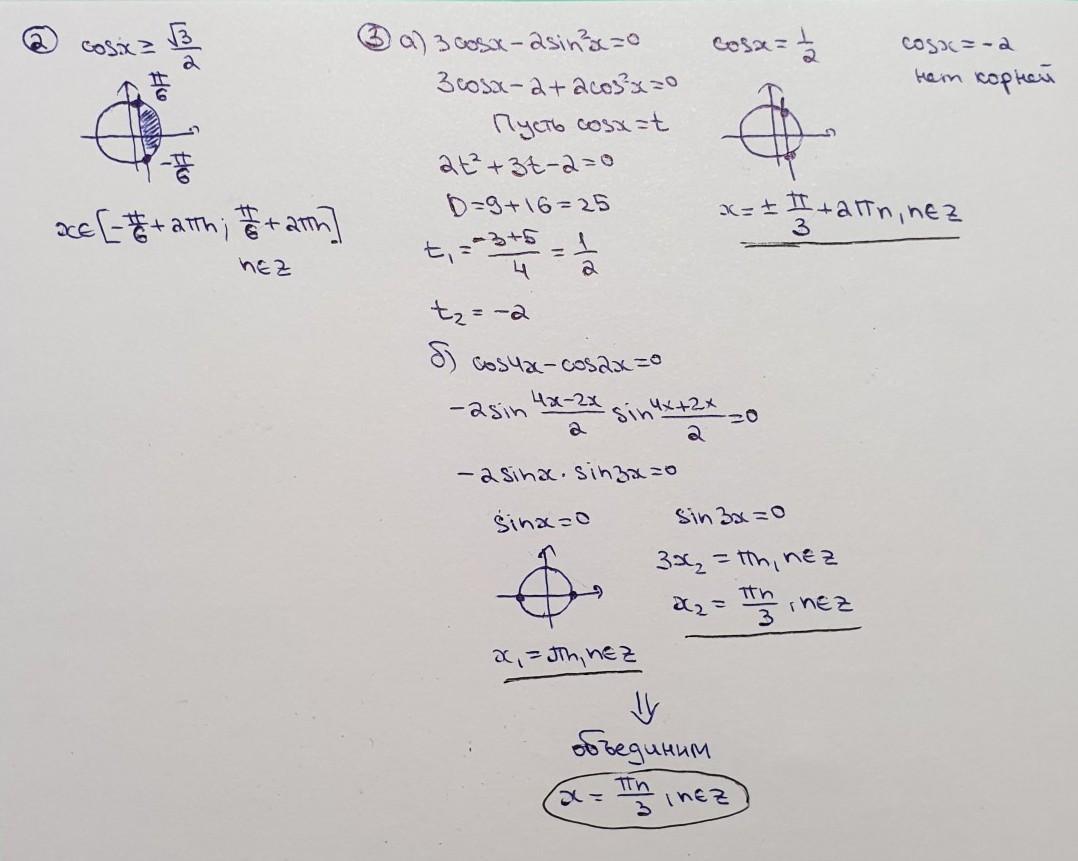 ② cosx ≥ √3/2
π/6
-π/6
x∈[-π/6+2πn; π/6+2πn]
n∈z
③ а) 3cosx-2sin²x=0
3cosx-2+2cos²x=0
Пусть cosx=t
2t²+3t-2=0
D=9+16=25
t₁=(-3+5)/4=1/2
t₂=-2
cosx=1/2
x=±π/3+2πn, n∈z
cosx=-2
нет корней
б) cos4x-cos2x=0
-2sin (4x-2x)/2 sin (4x+2x)/2=0
-2sinx·sin3x=0
sinx=0
x₁=πn, n∈z
sin3x=0
3x₂=πn, n∈z
x₂=πn/3, n∈z
⇓
объединим
x=πn/3, n∈z